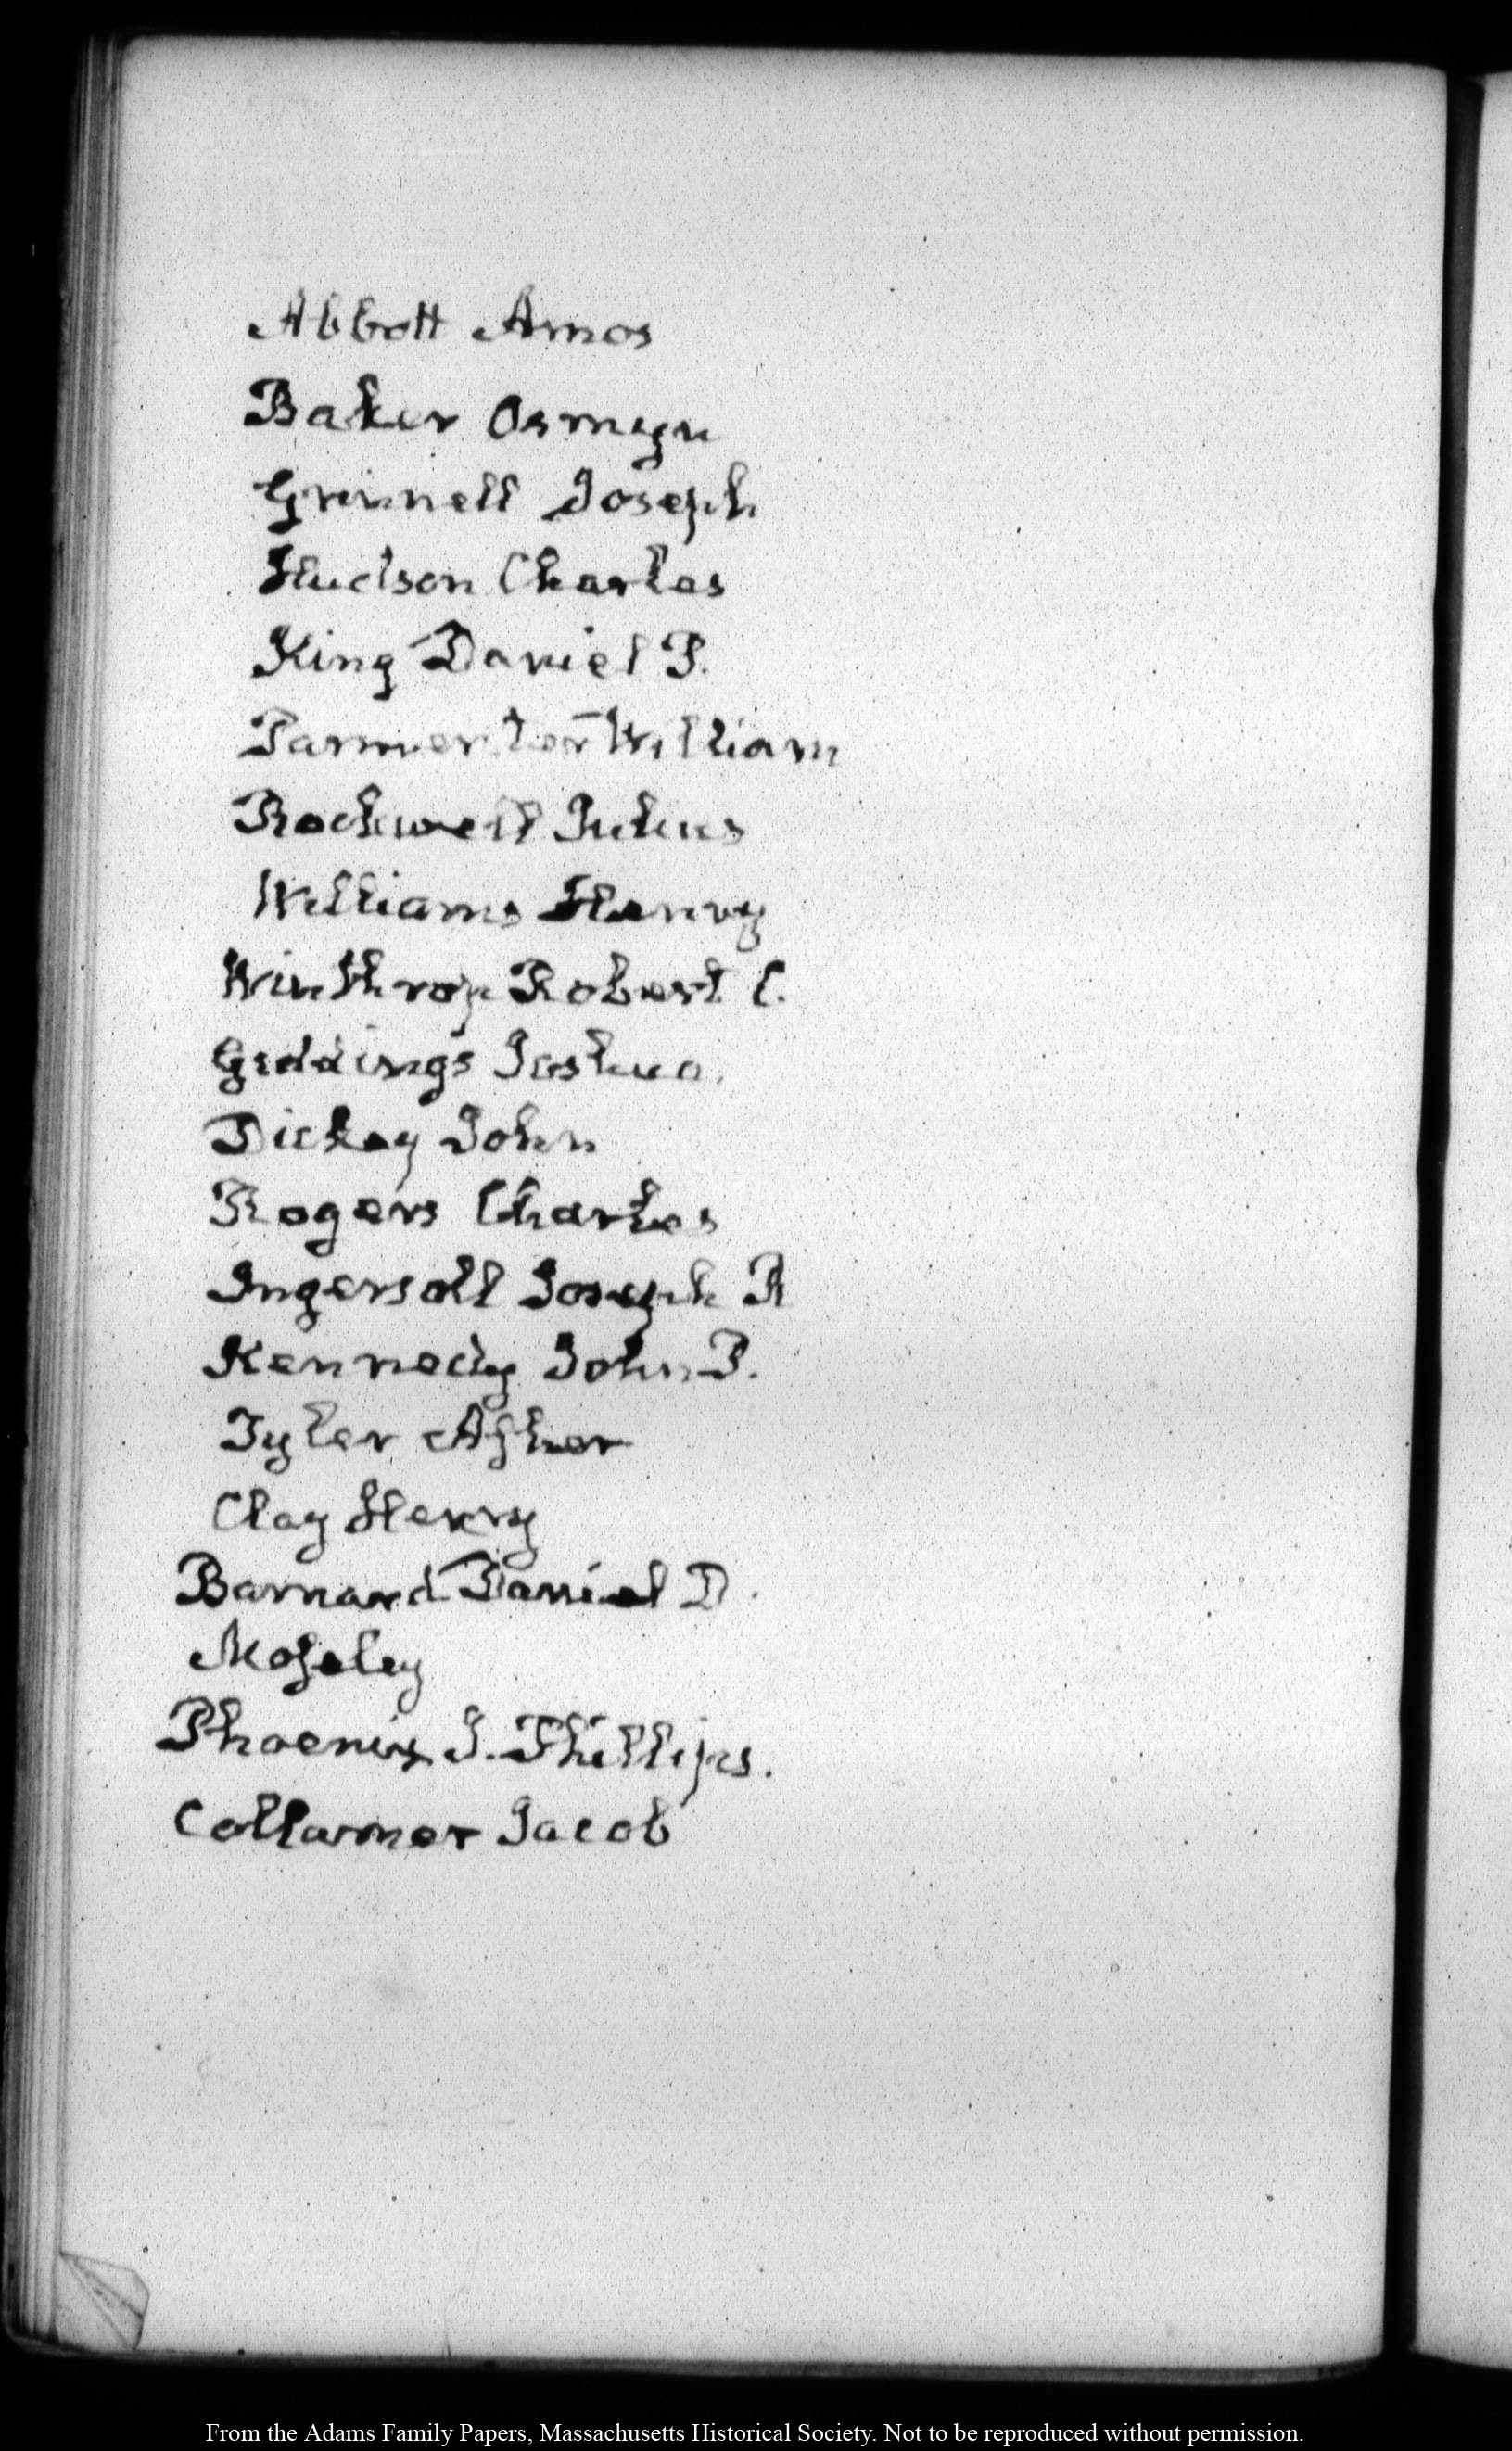 Abbott Amos
Baker Osmyn
Grinnell Joseph
Hudson Charles
King Daniel P.
Parmenter William
Rockwell Julius
Williams Henry
Winthrop Robert C.
Giddings Joshua.
Dickey John
Rogers Charles
Ingersoll Joseph R
Kennedy John P.
Tyler Asher
Clay Henry
Barnard Daniel D.
Moseley
Phoenix J. Phillips.
Collamer Jacob
From the Adams Family Papers, Massachusetts Historical Society. Not to be reproduced without permission.